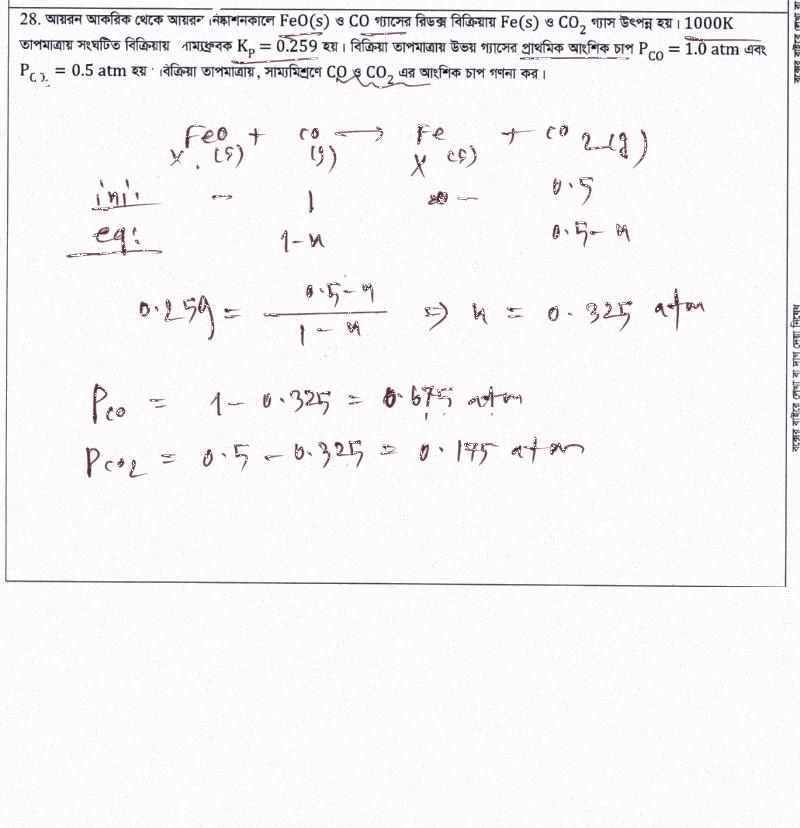 28. আয়রন আকরিক থেকে আয়রন নিষ্কাশনকালে FeO(s) ও CO গ্যাসের রিডক্স বিক্রিয়ায় Fe(s) ও CO₂ গ্যাস উৎপন্ন হয়। 1000K
তাপমাত্রায় সংঘটিত বিক্রিয়ায় সাম্যধ্রুবক K_p = 0.259 হয়। বিক্রিয়া তাপমাত্রায় উভয় গ্যাসের প্রাথমিক আংশিক চাপ P_CO = 1.0 atm এবং
= 0.5 atm হয়। বিক্রিয়া তাপমাত্রায়, সাম্যমিশ্রণে CO ও CO₂ এর আংশিক চাপ গণনা কর।
FeO + CO → Fe + CO₂(g)
x (s) (g) x (s)
ini: - 1 - 0.5
eq: 1-x 0.5-x
0.259 = 0.5-x / 1-x ⇒ x = 0.325 atm
P_CO = 1 - 0.325 = 0.675 atm
P_CO₂ = 0.5 - 0.325 = 0.175 atm